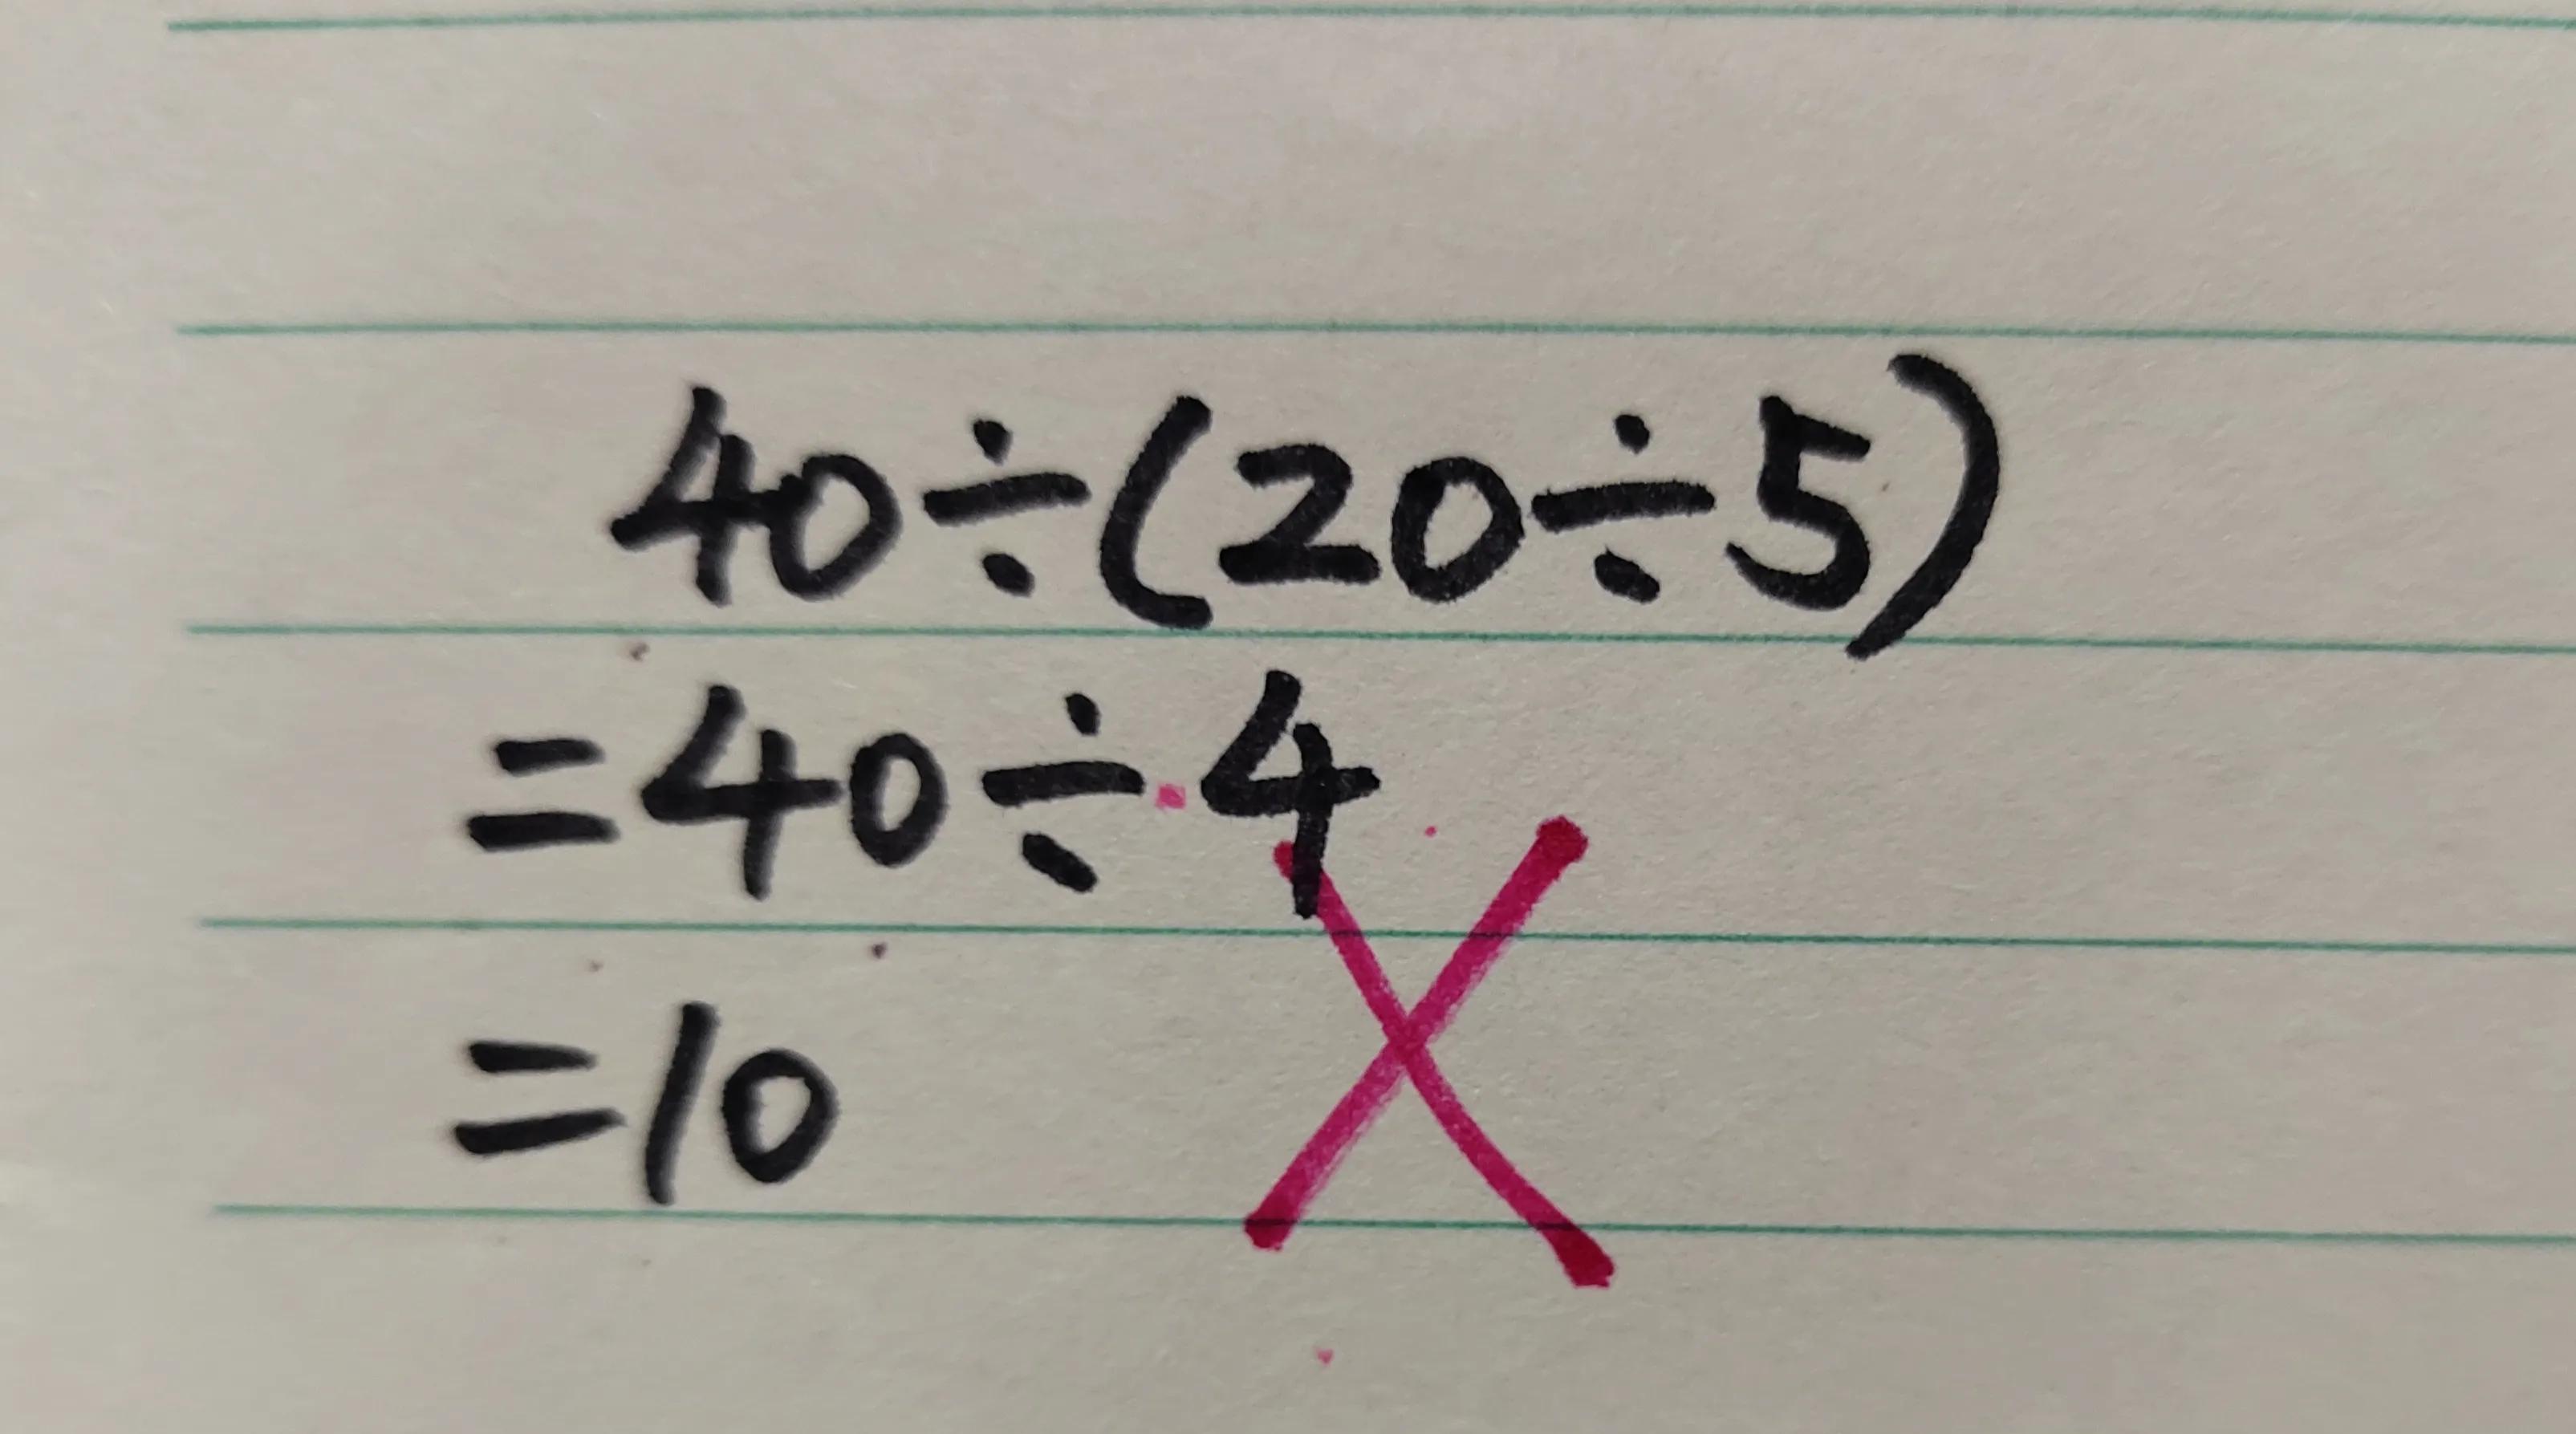 40÷(20÷5)
=40÷4
=10